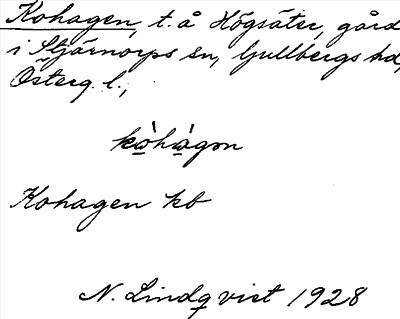 Kohagen, t. å Högsäter, gård
i Stjärnorps sn, Gullbergs hd,
Österg. l.,
kòhàgɔn
Kohagen kb
N. Lindqvist 1928